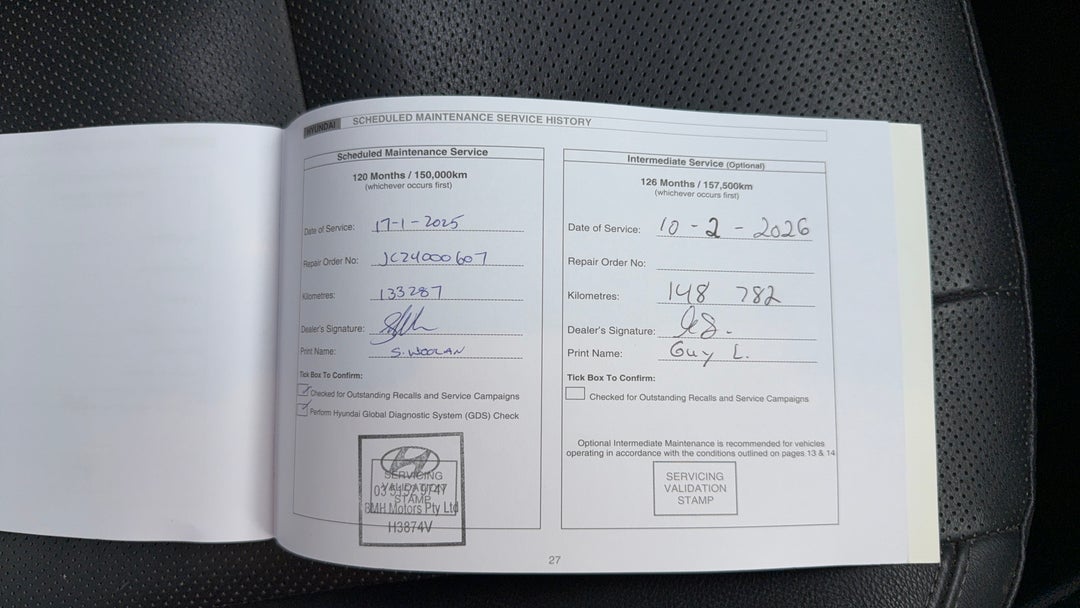 HYUNDAI SCHEDULED MAINTENANCE SERVICE HISTORY
Scheduled Maintenance Service
120 Months / 150,000km
(whichever occurs first)
Date of Service: 17-1-2025
Repair Order No: JC24000607
Kilometres: 133287
Dealer's Signature:
Print Name: S. WOOLAN
Tick Box To Confirm:
Checked for Outstanding Recalls and Service Campaigns
Perform Hyundai Global Diagnostic System (GDS) Check
SERVICING
VALIDATION
STAMP
BMH Motors Pty Ltd
H3874V
Intermediate Service (Optional)
126 Months / 157,500km
(whichever occurs first)
Date of Service: 10-2-2026
Repair Order No:
Kilometres: 148 782
Dealer's Signature:
Print Name: Guy L.
Tick Box To Confirm:
Checked for Outstanding Recalls and Service Campaigns
Optional Intermediate Maintenance is recommended for vehicles
operating in accordance with the conditions outlined on pages 13 & 14
SERVICING
VALIDATION
STAMP
27